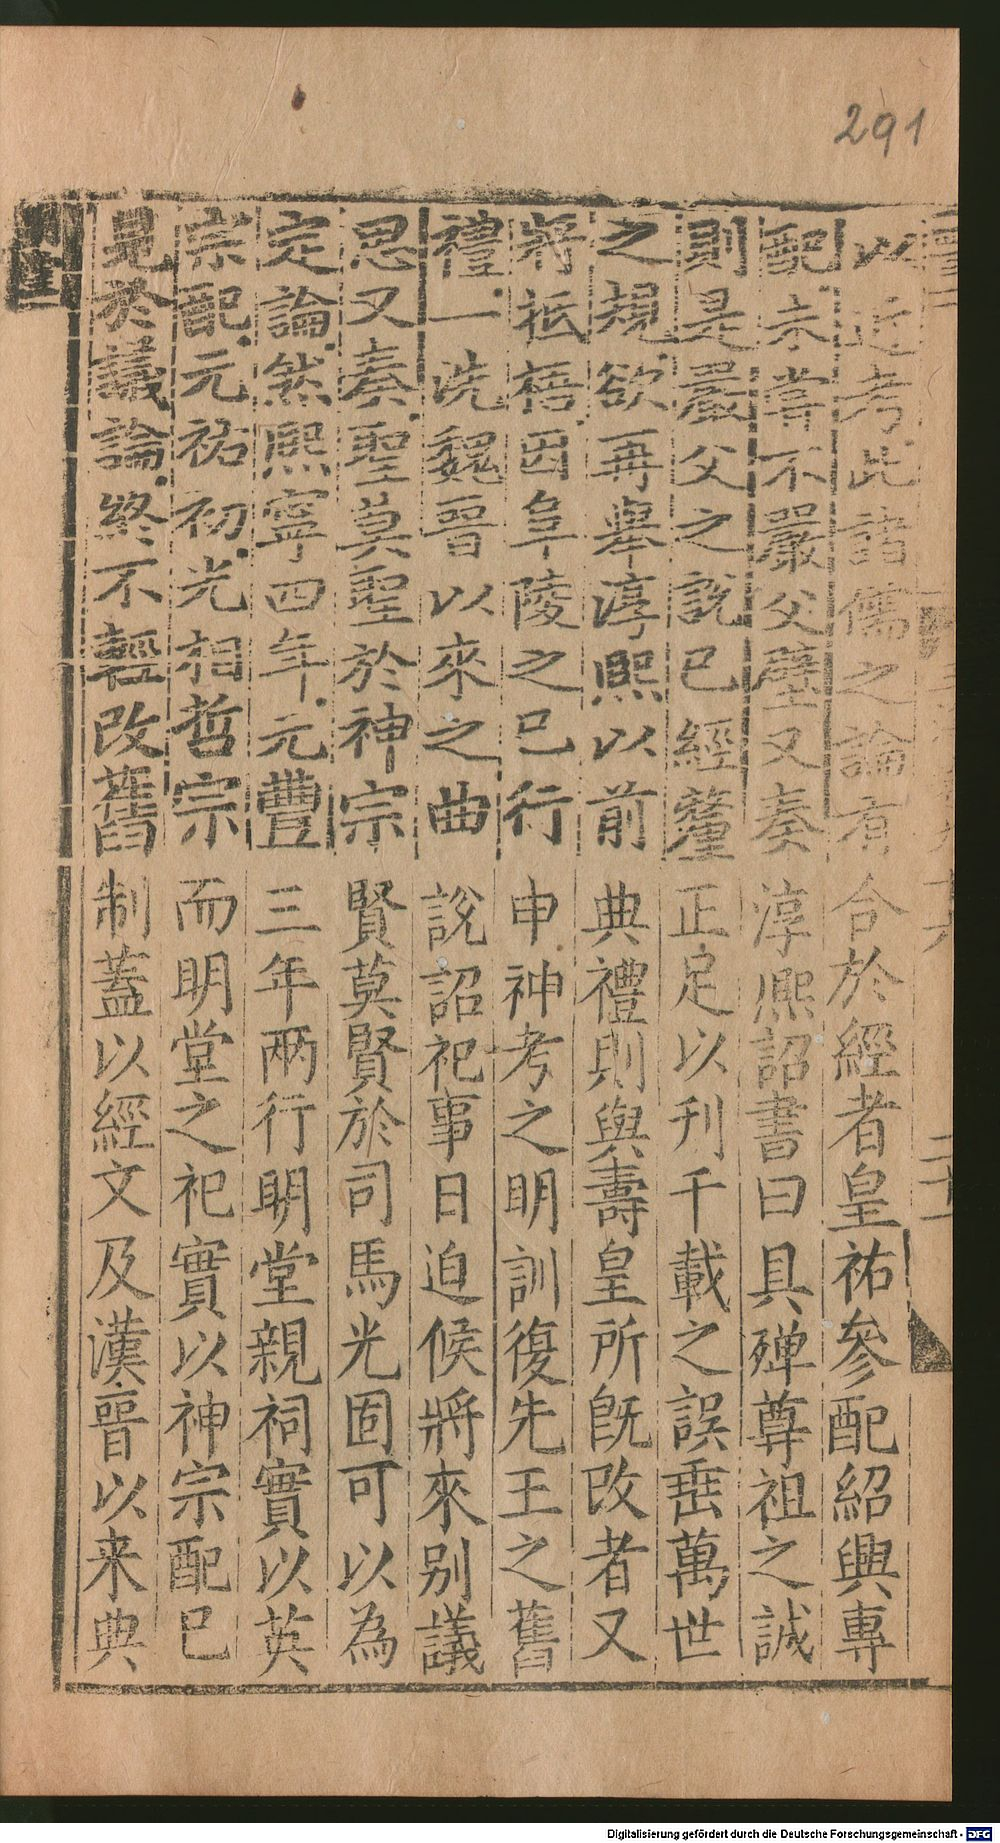 291
以近考此諸儒之論有合於經者皇祐參配紹興專
配未嘗不嚴父歷又奏淳熙詔書曰具殫尊祖之誠
則是嚴父之説已經釐正足以刋千載之誤垂萬世
之規欲再舉淳熙以前典禮則與壽皇所旣改者又
將抵梧因阜陵之已行申神考之明訓復先王之舊
禮一洗魏晉以來之曲說詔祀事日迫候將來別議
思又奏聖莫聖於神宗賢莫賢於司馬光固可以為
定論然熙寧四年元豐三年兩行明堂親祠實以英
宗配元祐初光相哲宗而明堂之祀實以神宗配已
見於議論終不輕改舊制蓋以經文及漢晉以来典
Digitalisierung gefördert durch die Deutsche Forschungsgemeinschaft - DFG